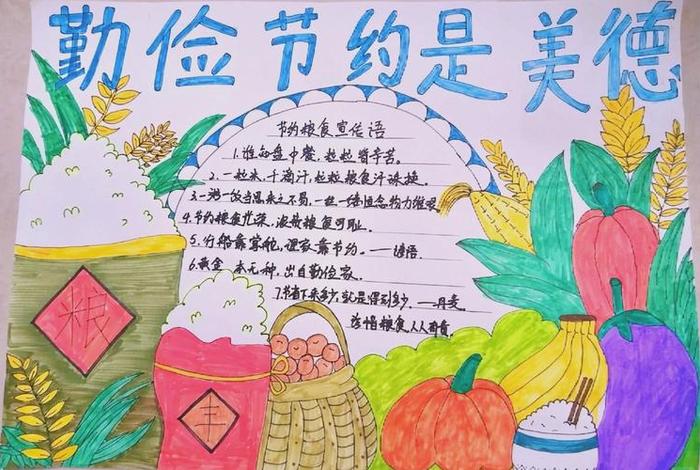 勤俭节约是美德
节约粮食宣传语
1.谁知盘中餐,粒粒皆辛苦。
2.一粒米,千滴汗,粒粒粮食汗珠换。
3.一粥一饭当思来之不易,一丝一缕恒念物力维艰
4.节约粮食光荣,浪费粮食可耻。
5.行船靠掌舵,理家靠节约。——谚语
6.黄金本无种,出自勤俭家。
7.省下来多少,就是得到多少。——丹麦
珍惜粮食人人有责
粮
丰